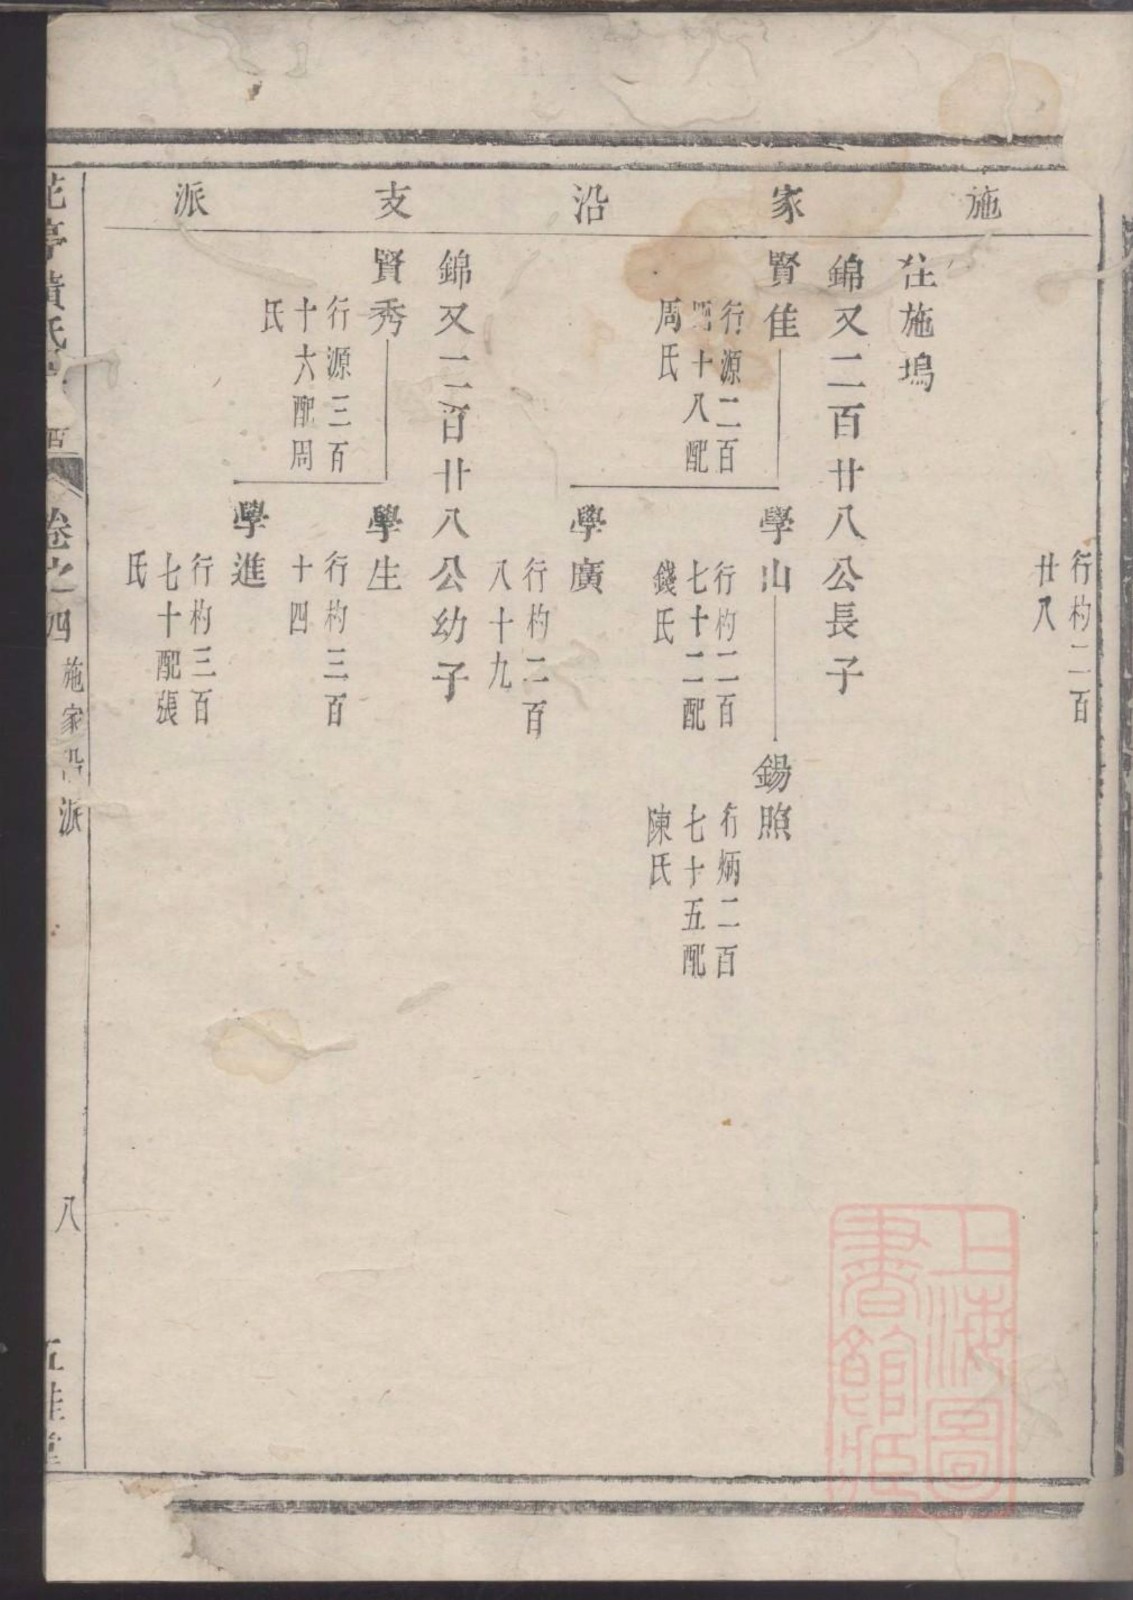 施家沿支派
行杓二百
廿八
住施塢
錦又二百廿八公長子
賢佳
行源二百
四十八配
周氏
學山
行杓二百
七十二配
錢氏
錫照
行炳二百
七十五配
陳氏
學廣
行杓二百
八十九
錦又二百廿八公幼子
賢秀
行源三百
十六配周
氏
學生
行杓三百
十四
學進
行杓三百
七十配張
氏
卷之四
施家沿派
八
上海圖
書館藏